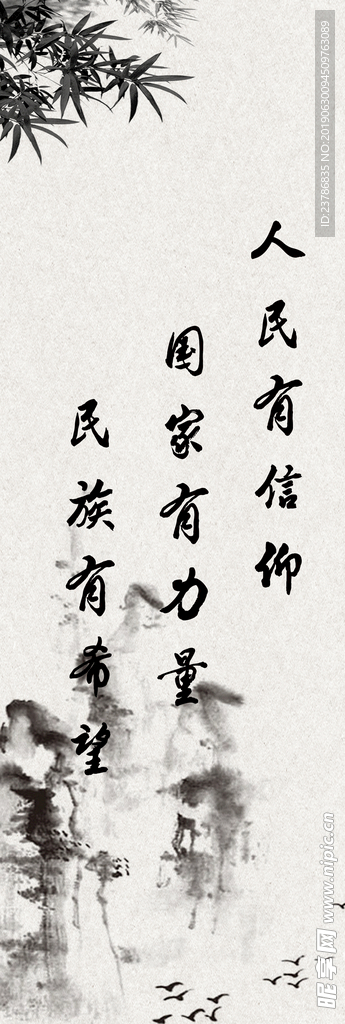 人民有信仰
国家有力量
民族有希望
ID:23786835 NO:20190630094509763089
昵享网 www.nipic.cn